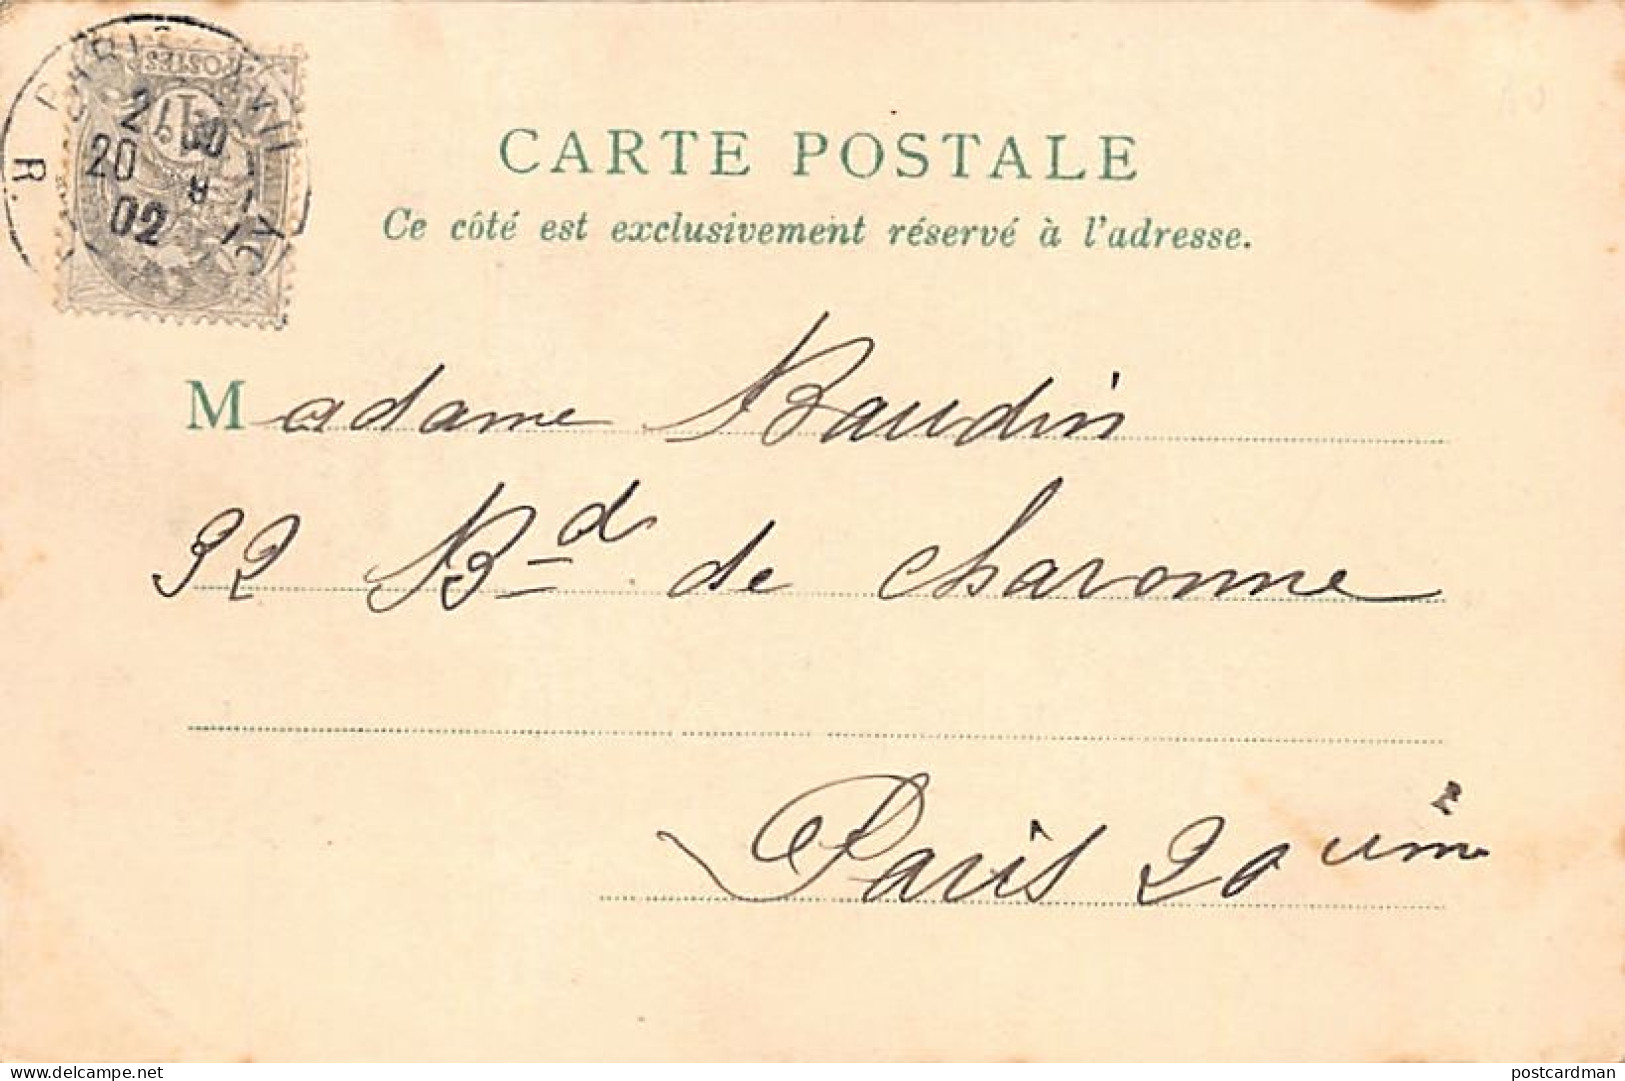 POSTES
21 30
20 8
02
R.
CARTE POSTALE
Ce côté est exclusivement réservé à l'adresse.
Madame Baudin
32 Bd de Charonne
Paris 20 ième
delcampe.net
postcardman